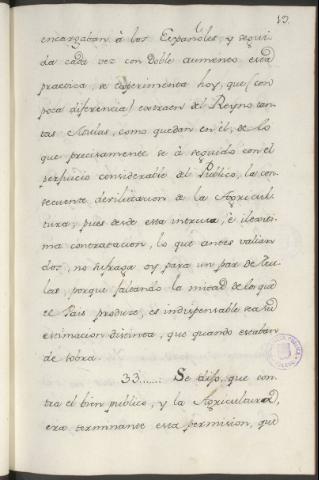 13.
encargaban â los Españoles, y seguida
cada vez con doble aumento esta
practica, se experimenta hoy, que (con
poca diferencia) extraen del Reyno tantas
Mulas, como quedan en él, de lo
que precisamente se â seguido con el
perjuicio considerable del Publico, la consecuente
devilitacion de la Agricultura,
pues desde esta intrusa, é ilexitima
contratacion, lo que antes valian
dos, no sufraga oy para un par de Mulas,
porque faltando la mitad de lo que
el Pais produce, es indispensable sea su
estimacion distinta, que quando estaban
de sobra.
33...... Se dijo, que contra
el bien publico, y la Agricultura,
era terminante esta permision, que